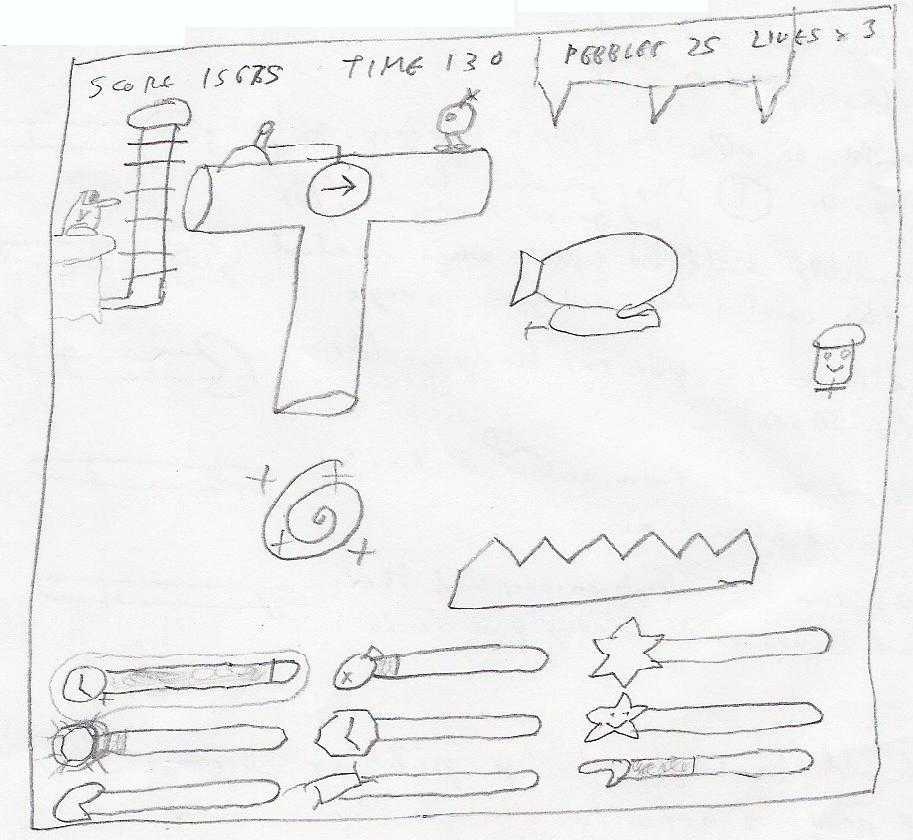 SCORE 15675 TIME 130 PEBBLES 25 LIVES x 3